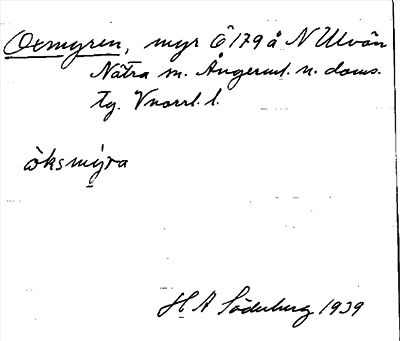 Oxmyren, myr Ö 179 å N Ulvön
Nätra sn. Ångerml. n. doms.
tg. Vnorrl. l.
òksmýra
H A Söderberg 1939